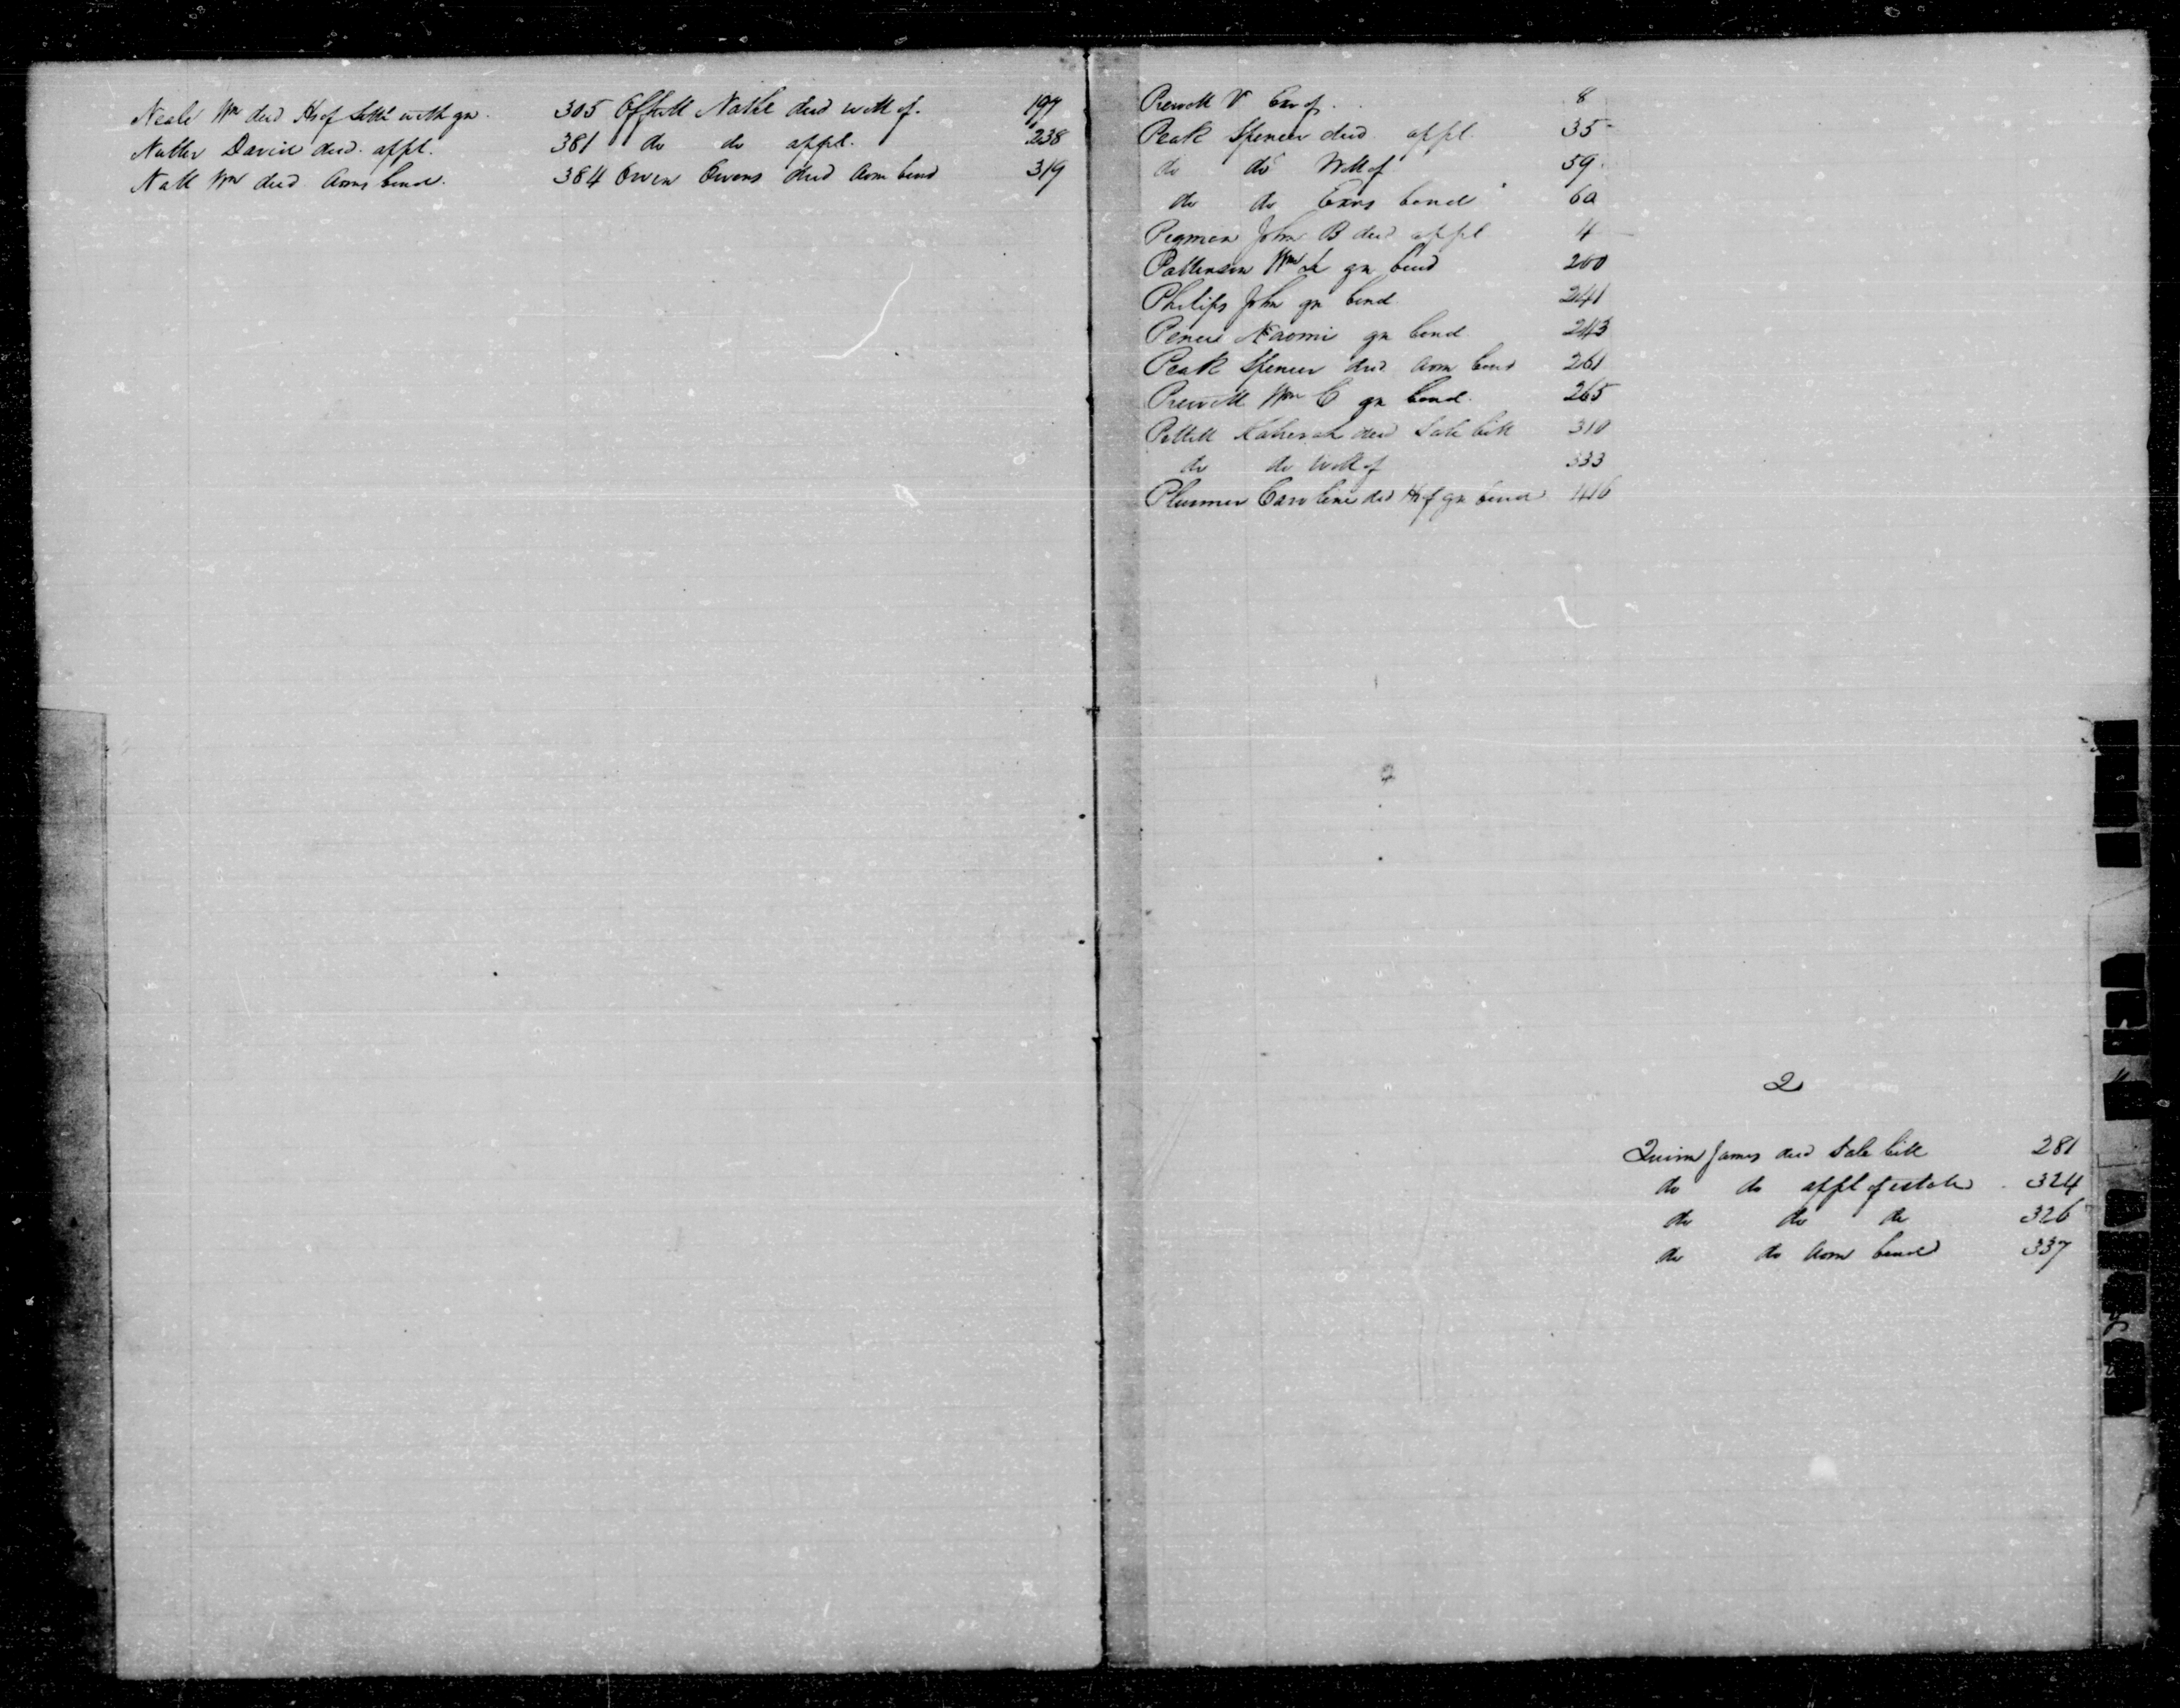 Neale Wm decd Hs of Settlt with gn. 305
Nutter David decd. appt. 381
Nall Wm decd Adms bond. 384
Offutt Nathl decd will of. 197
do do appt. 238
Owen Owens decd Adm bond 319
Prewitt V Exr of. 8
Peak Spencer decd appt 35
do do Will of 59
do do Exrs bond 60
John B decd appt 4
Patterson Wm gn bond 200
Philips John gn bond 241
Naomi gn bond 243
Peak Spencer decd Adm bond 261
Prewitt Wm C gn bond. 265
decd Sale bill 310
do do Will of 333
Plummer Caroline decd Hs of gn bond 416
Q
Quinn James decd Sale bill 281
do do appt of estate 324
do do do 326
do do Adm bond 337